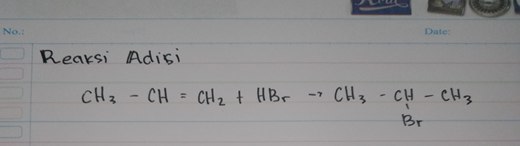 No.:
Date:
Reaksi Adisi
CH₃ - CH = CH₂ + HBr → CH₃ - CH - CH₃
Br